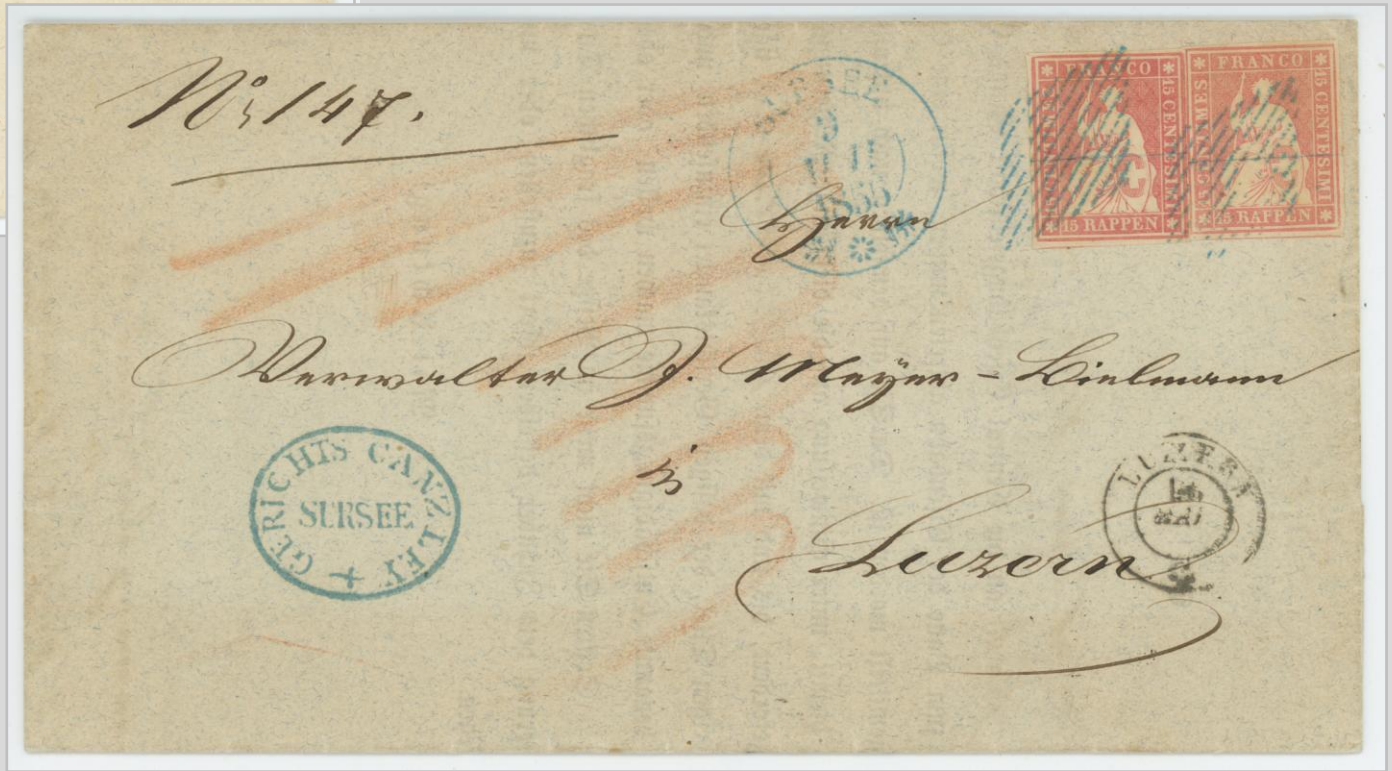 No 147.
SURSEE
9
1855
Herrn
FRANCO
15 CENTESIMI
15 RAPPEN
FRANCO
15 CENTIMES
15 CENTESIMI
15 RAPPEN
Verwalter J. Meyer-Bielmann
in
Luzern
GERICHTS CANZLEY
SURSEE
LUZERN